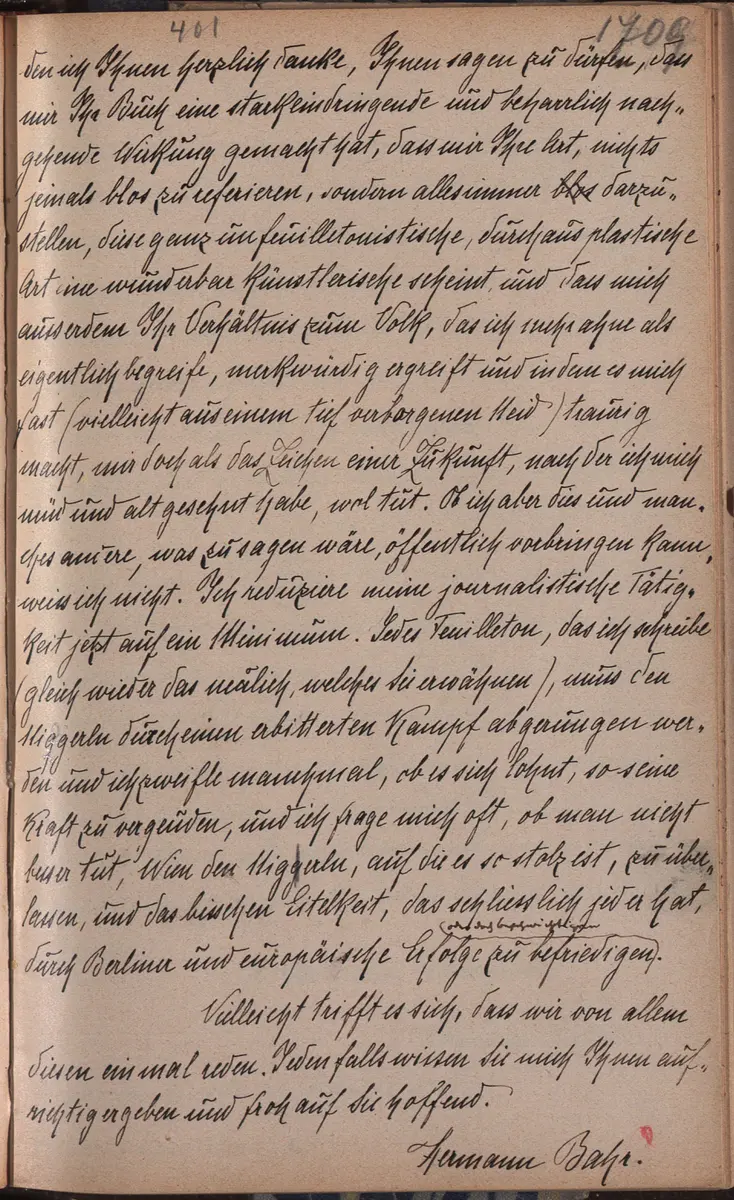 401
1709
den ich Ihnen herzlich danke, Ihnen sagen zu dürfen, dass
mir Ihr Buch eine starkeindringende und beharrlich nach-
gehende Wirkung gemacht hat, dass mir Ihre Art, nichts
jemals blos zu referieren, sondern alles immer blos darzu-
stellen, diese ganz unfeuilletonistische, durchaus plastische
Art eine wunderbar künstlerische scheint, und dass mich
ausserdem Ihr Verhältnis zum Volk, das ich mehr ahne als
eigentlich begreife, merkwürdig ergreift und indem es mich
fast (vielleicht aus einem tief verborgenen Neid) traurig
macht, mir doch als das Zeichen einer Zukunft, nach der ich mich
müd und alt gesehnt habe, wol tut. Ob ich aber dies und man-
ches andere, was zu sagen wäre, öffentlich vorbringen kann,
weiss ich nicht. Ich reduziere meine journalistische Tätig-
keit jetzt auf ein Minimum. Jedes Feuilleton, das ich schreibe
(gleich wieder das neulich, welches Sie erwähnen), muss den
Niggerln durch einen erbitterten Kampf abgerungen wer-
den und ich zweifle manchmal, ob es sich lohnt, so seine
Kraft zu vergeuden, und ich frage mich oft, ob man nicht
besser tut, Wien den Niggerln, auf die es so stolz ist, zu über-
lassen, und das bisschen Eitelkeit, das schliesslich jeder hat,
durch Berliner und europäische Erfolge zu befriedigen (oder doch beschwichtigen).
Vielleicht trifft es sich, dass wir von allem
diesen einmal reden. Jedenfalls wissen Sie mich Ihnen auf-
richtig ergeben und froh auf Sie hoffend.
Hermann Bahr.